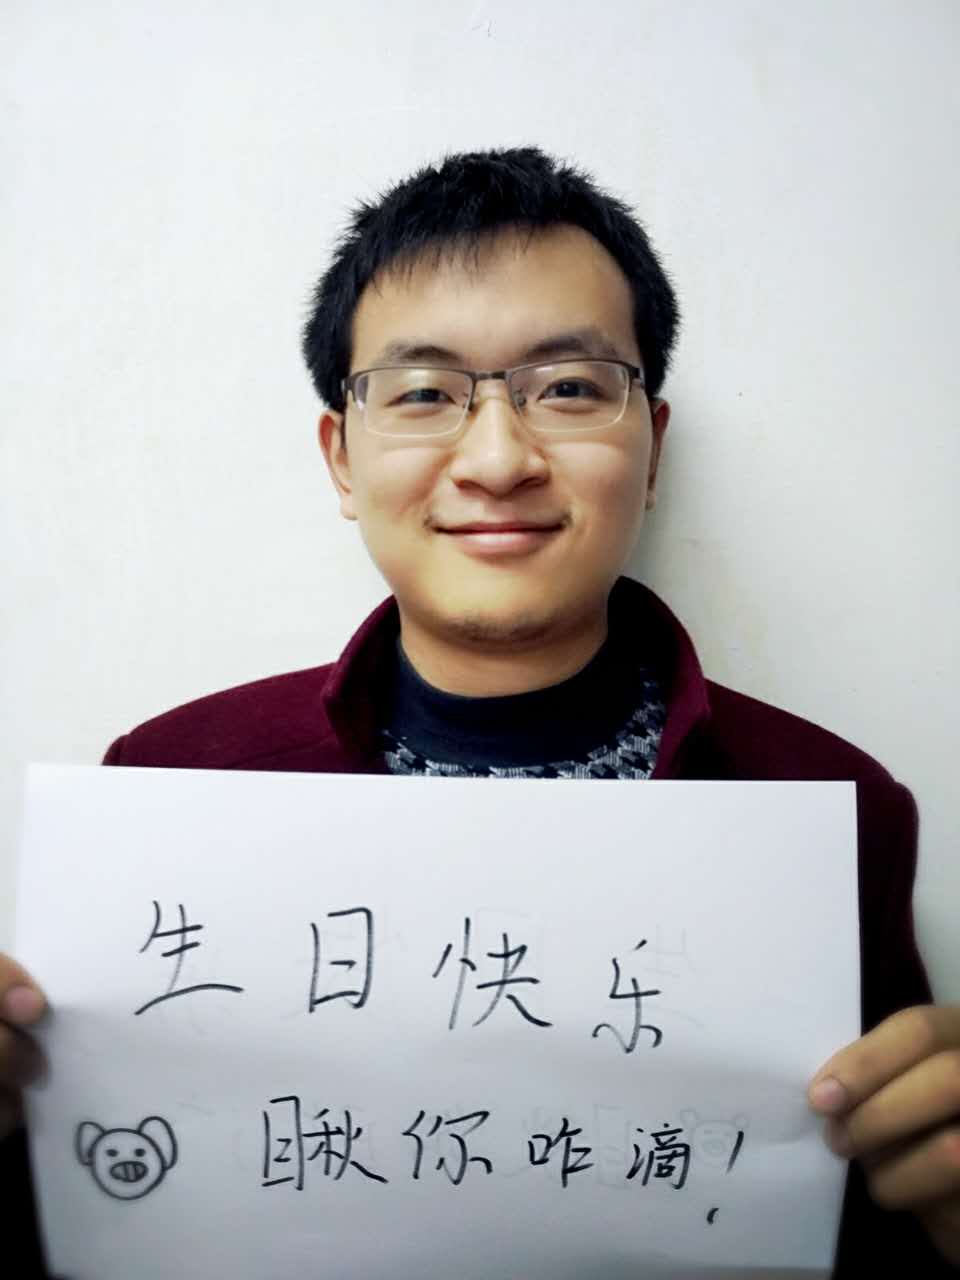 生日快乐
瞅你咋滴！